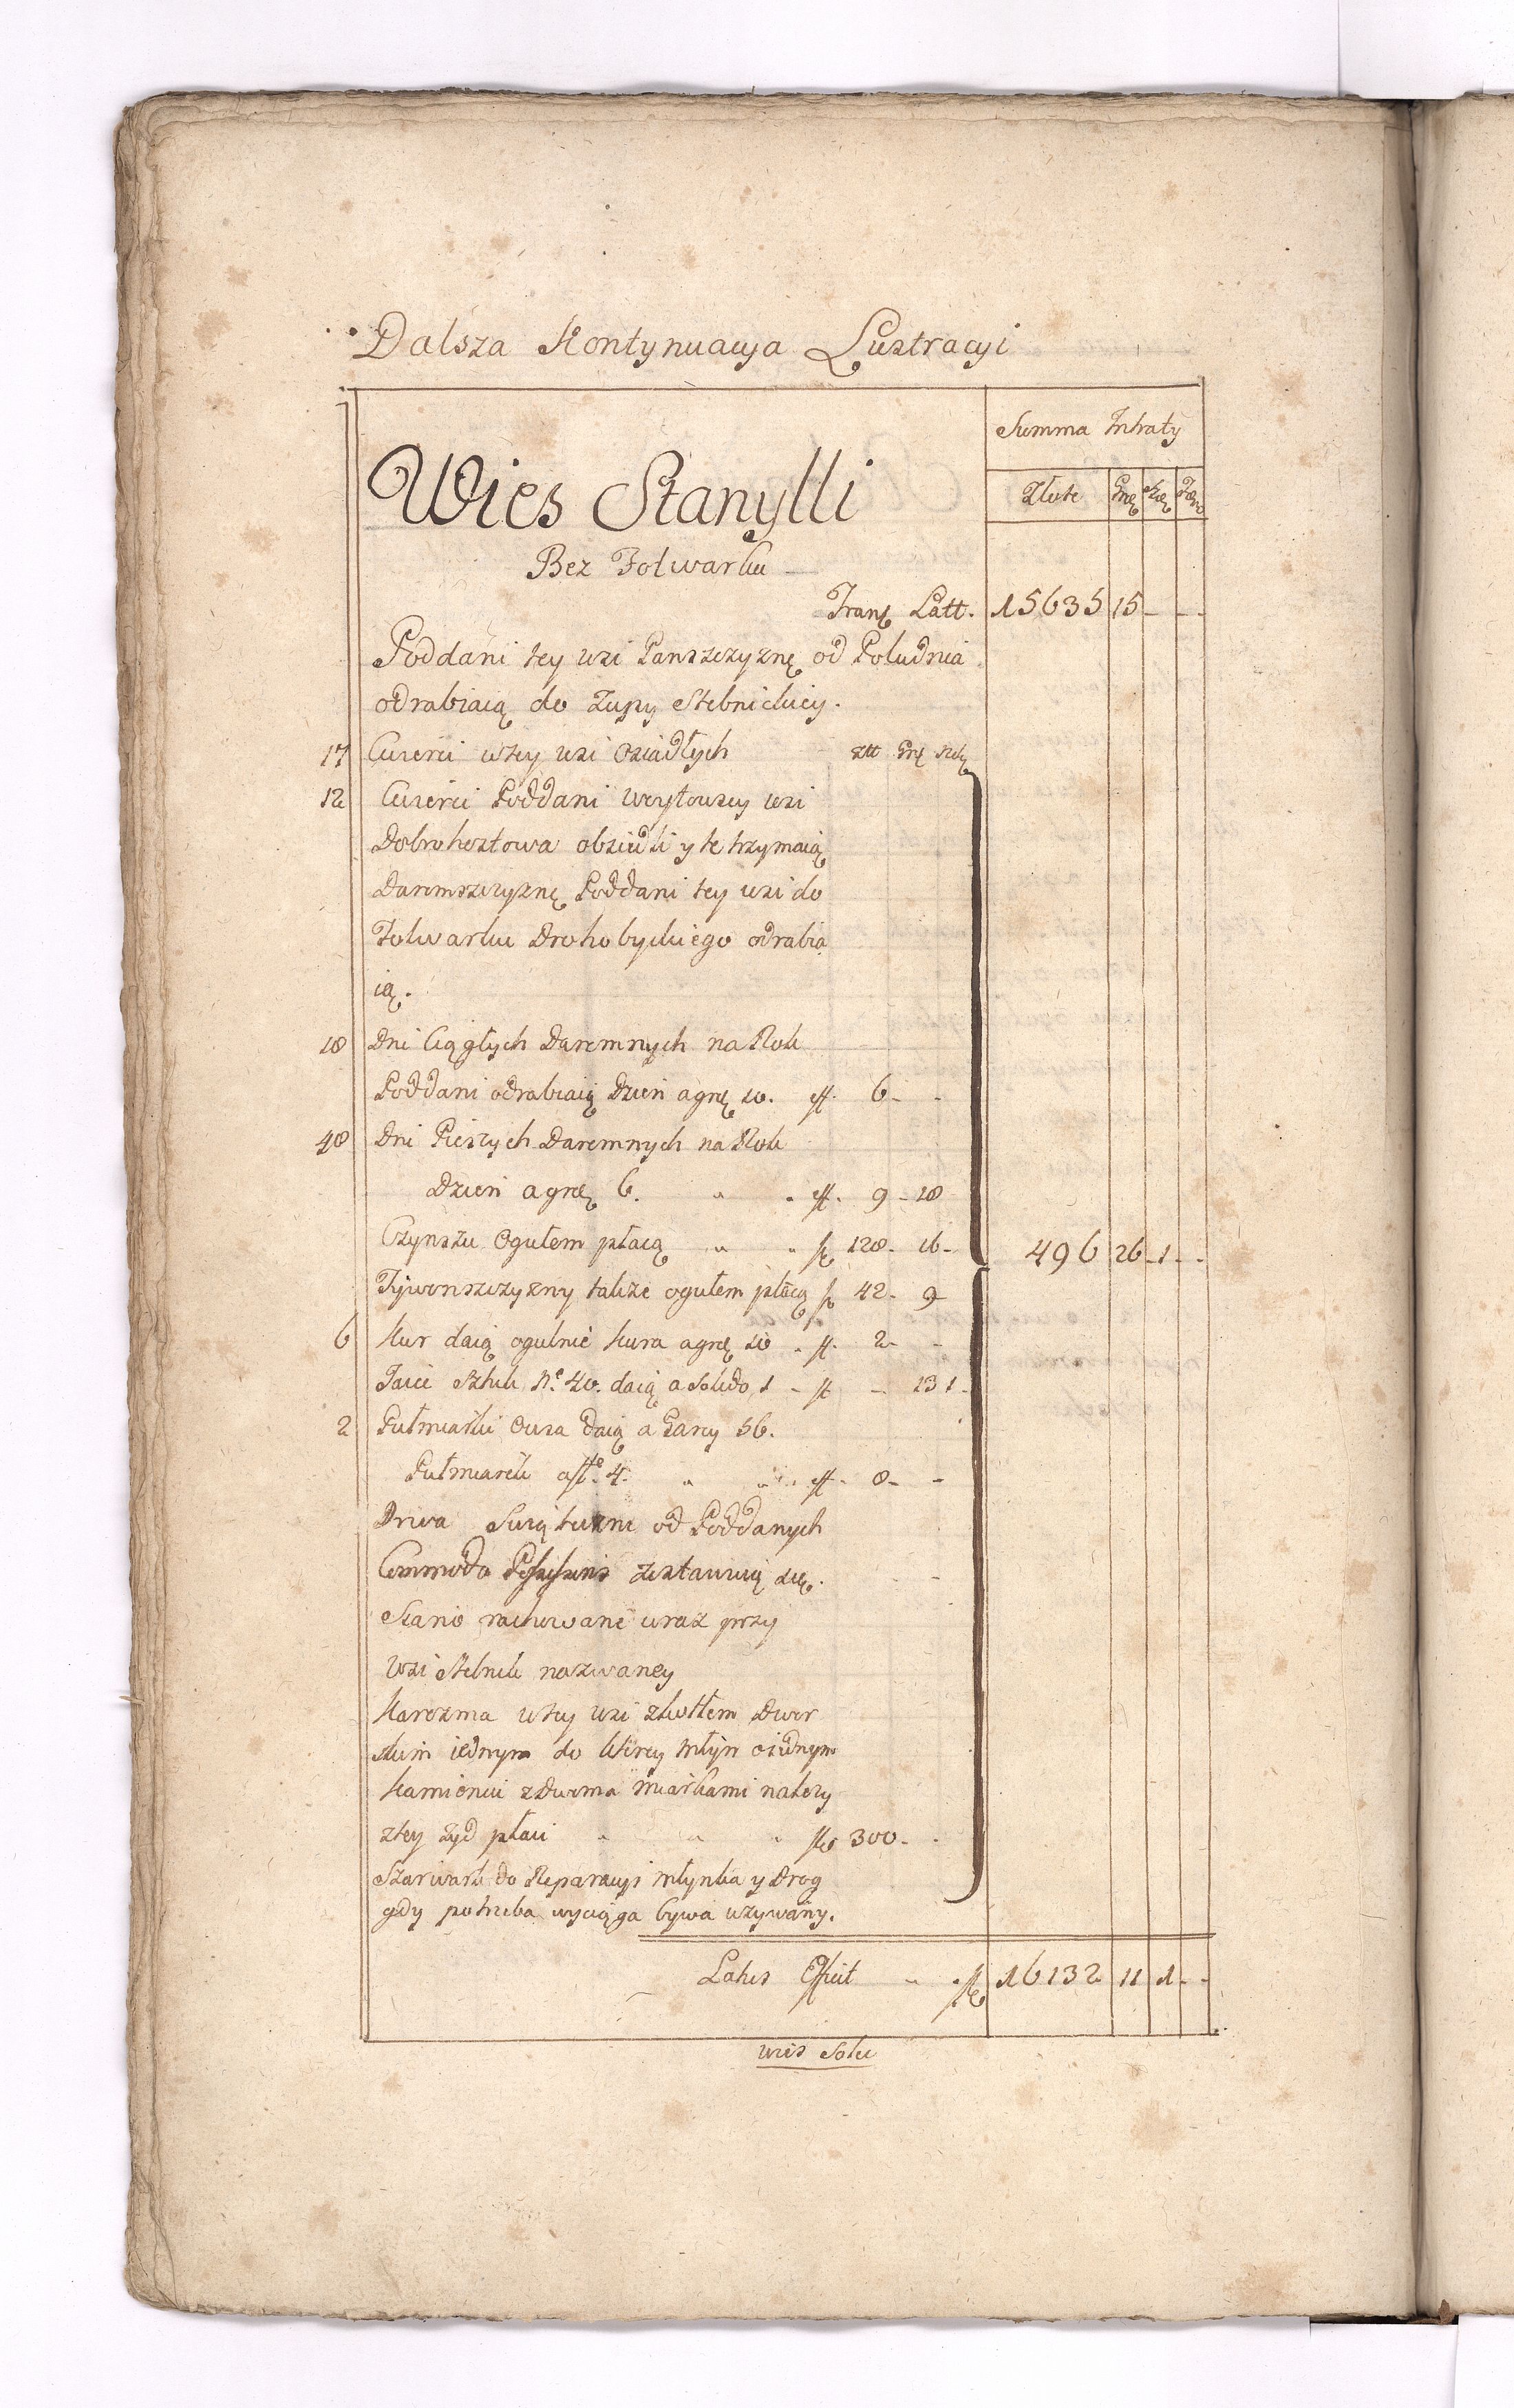 Dalsza Kontynuacya Lustracyi
Summa Intraty
Złote Gr Szel
Wies Stanylli
Bez Folwarku
Trans Latt. 15635 15 - - -
Poddani tey wsi Panszczyznę od Południa
odrabiaią do Zupy Stebnickiey.
17 Cwierci wtey wsi Osiadłych złt Gr Szel
12 Cwierci Poddani Woytowscy wsi
Dobrohostowa obsiedli y te trzymaią
Daremszczyznę Poddani tey wsi do
Folwarku Drohobyckiego odrabia
ią.
18 Dni Ciągłych Daremnych na Rok
Poddani odrabiaią Dzień a gr 10. 6 - -
48 Dni Pieszych Daremnych na Rok
Dzień a gr 6. 9 - 18
Czynszu Ogułem płacą 128 - 16 - 496 26 - 1 - -
Tywonszczyzny także ogułem płacą 42 - 9
6 Kur daią ogulnie kura a gr 10 2 - -
Jaiec Sztuk No 40. daią a Solido 1 - 13 1
2 Pułmiarki Owsa Daią a Garcy 56.
Pułmiarek a 4. 8 - -
Drwa od Poddanych
Commodo zostawuią się.
Siano rachowane wraz przy
Wsi Stebnik nazwaney
Karczma wtey wsi zkotłem Dwor
skim iednym do ktorey Młyn oiednym
Kamieniu zDwoma miarkami należy
ztey żyd płaci 300 - -
Szarwark do Reparacyi Młynka y Drog
gdy potrzeba wyciąga bywa używany.
Latus Efficit 16132 11 1 - -
wies Solec